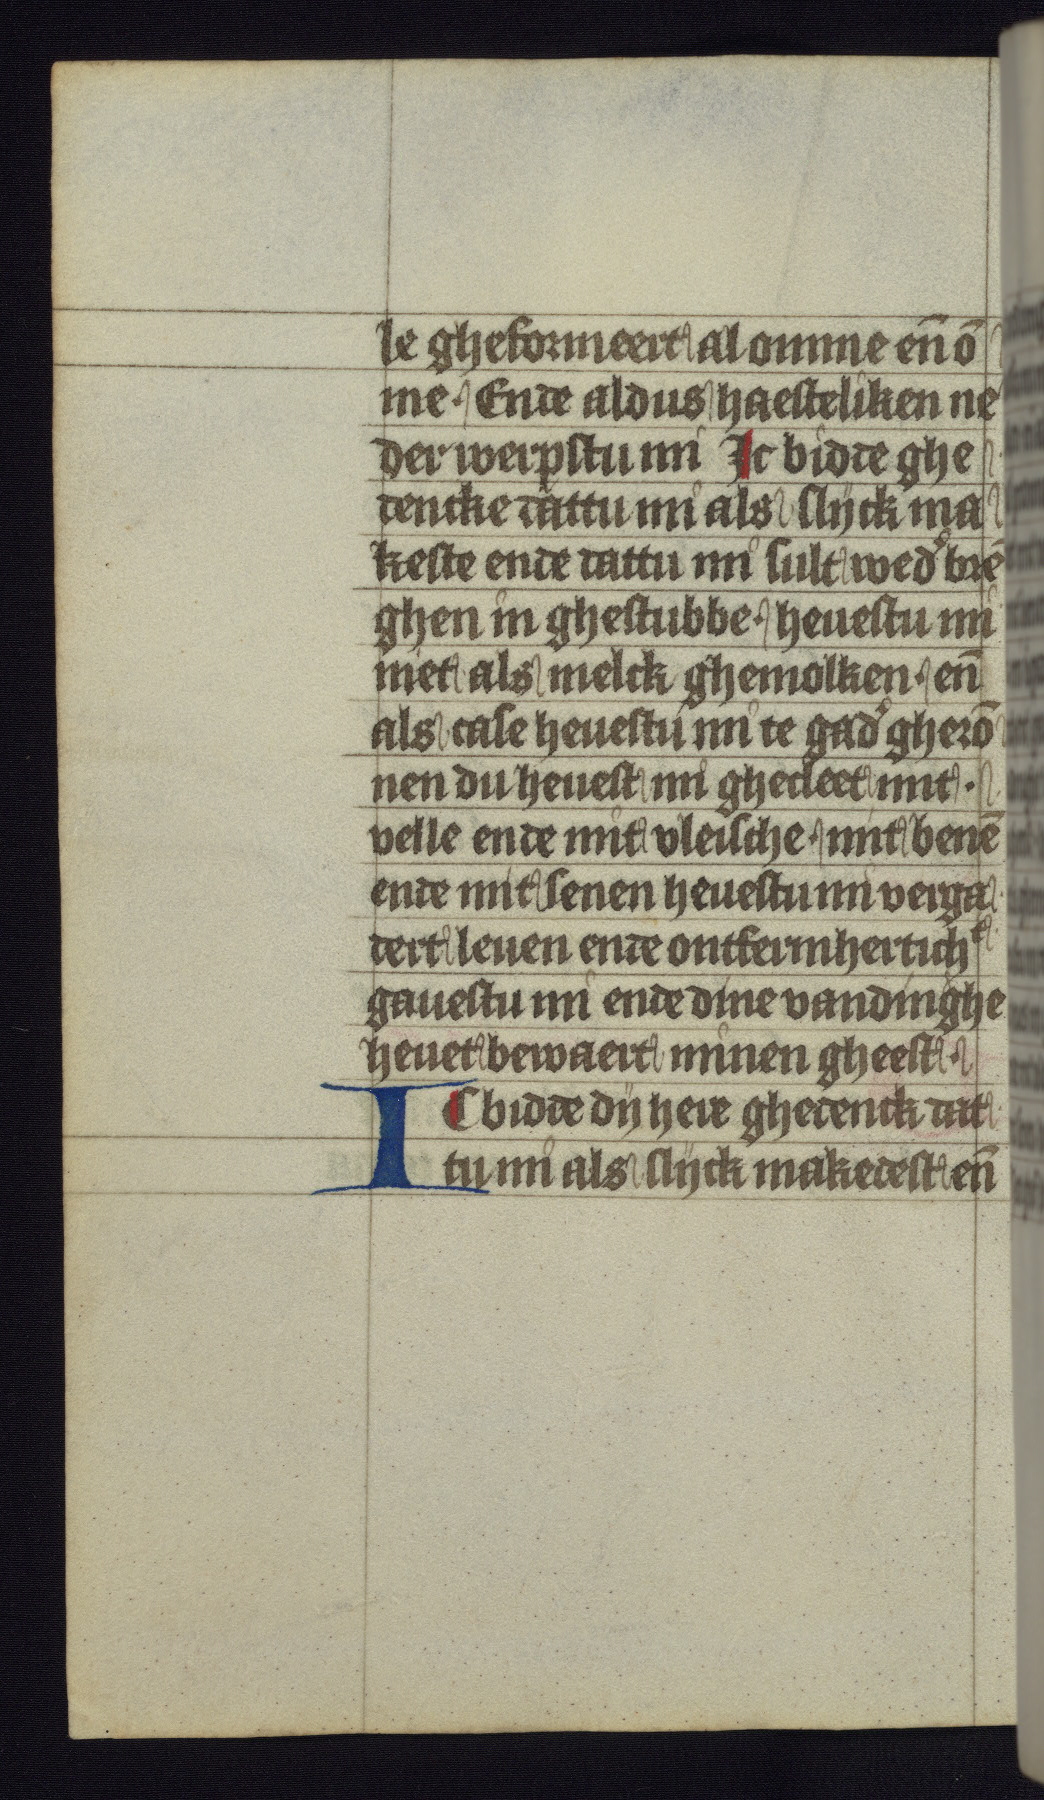 le gheformeert al omme en̄ ō
me. Ende aldus haesteliken ne
der werpstu mi Ic bidde ghe
dencke dattu mi als slijck ma
keste ende dattu mi sult wed͛ brē
ghen in ghestubbe. heuestu mi
niet als melck ghemolken. en̄
als case heuestu mi te gad͛ gherō
nen du heuest mi ghecleet mit.
velle ende mit vleische. mit benē
ende mit senen heuestu mi verga
dert leuen ende ontfermherticht
gauestu mi ende dine vandinghe
heuet bewaert minen gheest.
IC bidde dij here ghedenck dat
tu mi als slijck makedest en̄